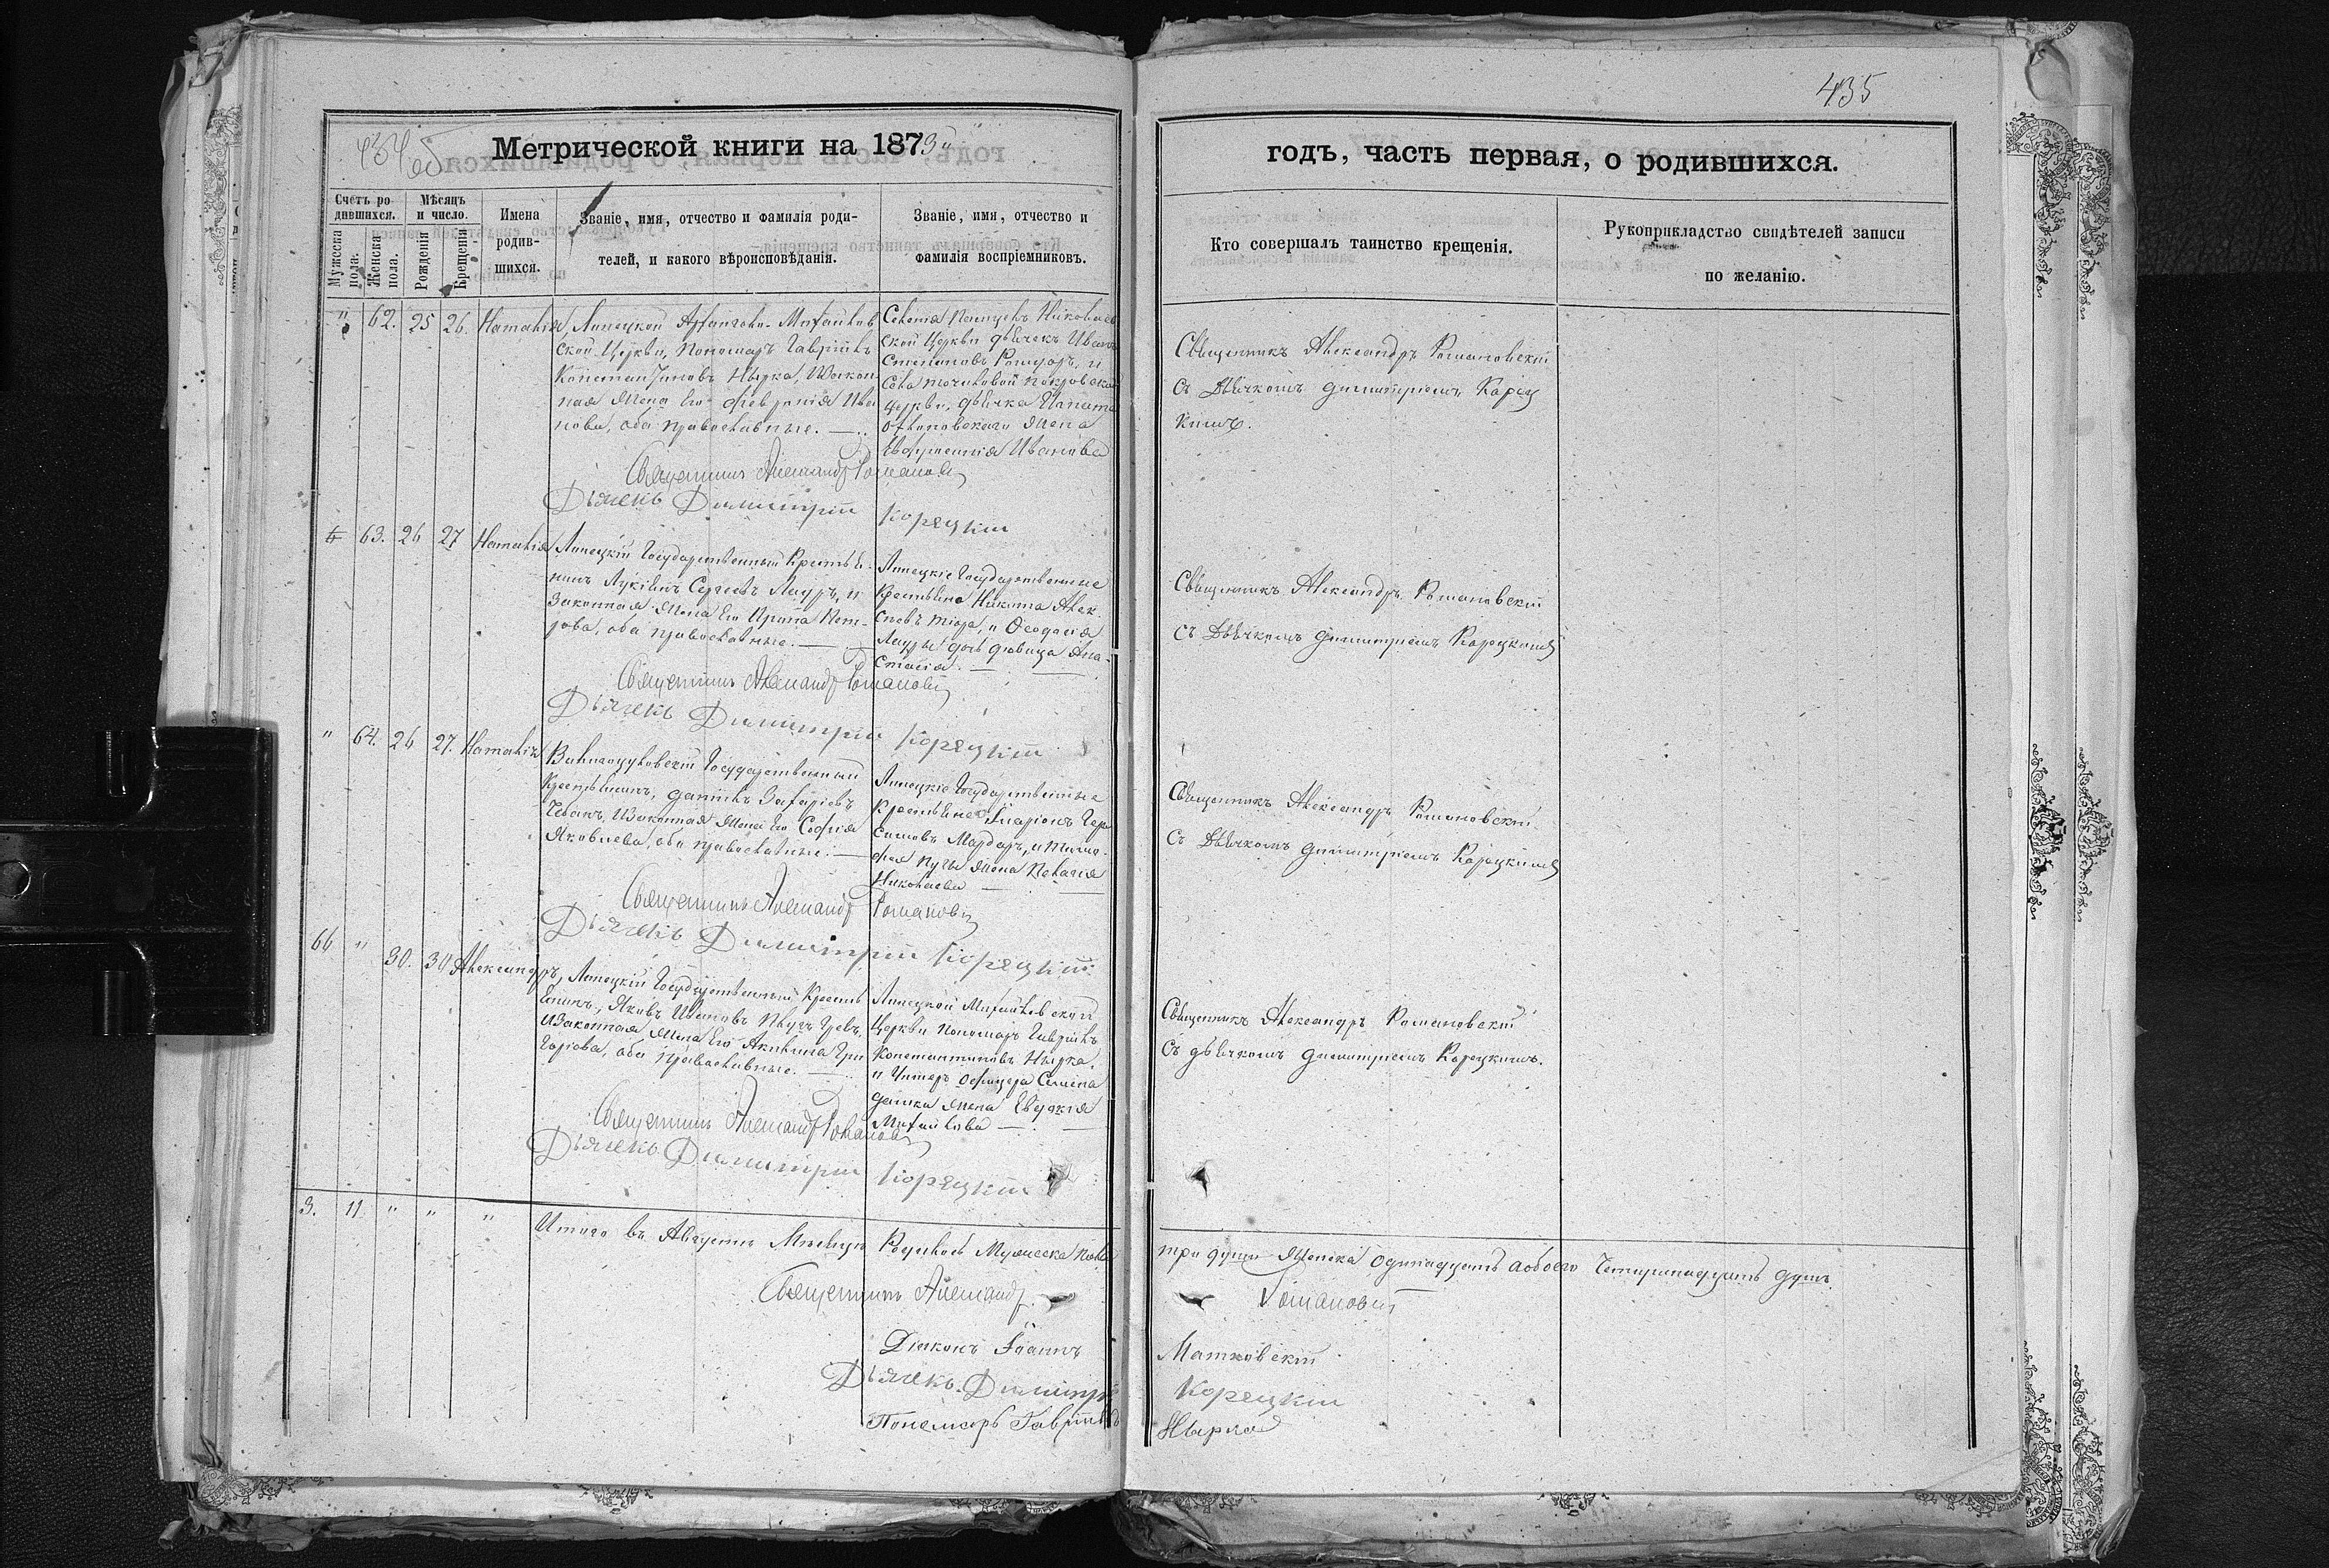 435
434 об
Метрической книги на 1873й
годъ, часть первая, о родившихся.
Счетъ ро
дившихся.
Мѣсяцъ
и число.
Мужеска
пола.
Женска
пола.
Рожденія
Крещенія
Имена
родив-
шихся.
Званіе, имя, отчество и фамилія роди-
телей, и какого вѣроисповѣданія.
Званіе, имя, отчество и
фамилія воспріемниковъ.
Кто совершалъ таинство крещенія.
Рукоприкладство свидѣтелей записи
по желанію.
" 62. 25 26. Наталія,
Липецкой Архангело-Михайлов
ской Церкви, Пономарь Гавріилъ
Константиновъ Нырка, Изакон
ная жена Его Февронія Ива
нова, оба православные.
Села Николаев
ской Церкви дьячекъ Иванъ
Степановъ и
Села Покровской
церкви, дьячка
жена
Евфросинія Иванова
Священникъ Александръ Романовскій
съ Дьячкомъ Димитріемъ Корец
кимъ.
Священникъ Александръ Романовскій
Дьячекъ Димитрій Корецкій
63. 26 27 Наталія
Липецкій Государственный Крестья
нинъ Лукіянъ Сергеевъ и
Законная жена Его Ирина Пет-
рова, оба православные.
Липецкіе Государственные
Крестьяне Никита Алек
и Феодосія
дочь дѣвица Ана-
стасія.
Священникъ Александръ Романовскій
съ Дьячкомъ Димитріемъ Корецкимъ
Священникъ Александръ Романовскій
Дьячекъ Димитрій Корецкій
" 64. 26 27. Наталія
Государственный
Крестьянинъ, Даніилъ Захаріевъ
Чебанъ, Изаконная жена Его Софія
Яковлева, оба православные.
Липецкіе Государственные
Крестьяне Иларіонъ Гера
симовъ Мардарь, и Тимо-
фея жена Пелагія
Николаева
Священникъ Александръ Романовскій
съ Дьячкомъ Димитріемъ Корецкимъ
Священникъ Александръ Романовскій
Дьячекъ Димитрій Корецкій
66 " 30. 30 Александръ,
Липецкій Государственный Кресть
янинъ, Яковъ Ивановъ
Изаконная жена Его Акилина Гри
горіева, оба православные.
Липецкой Михайловской
Церкви Пономарь Гавріилъ
Константиновъ Нырка,
и Унтеръ Офицера Семена
жена Евдокія
Михайлова
Священникъ Александръ Романовскій
съ дьячкомъ Димитріемъ Корецкимъ.
Священникъ Александръ Романовскій
Дьячекъ Димитрій Корецкій
3. 11 " " "
Итого въ Августѣ Мѣсяцѣ Родилось Мужеска пола
три души Женска Одинадцать Аобоего Четырнадцать душъ.
Священникъ Александръ Романовскій
Діаконъ Іоаннъ Матковскій
Дьячекъ Димитрій Корецкій
Пономарь Гавріилъ Нырка